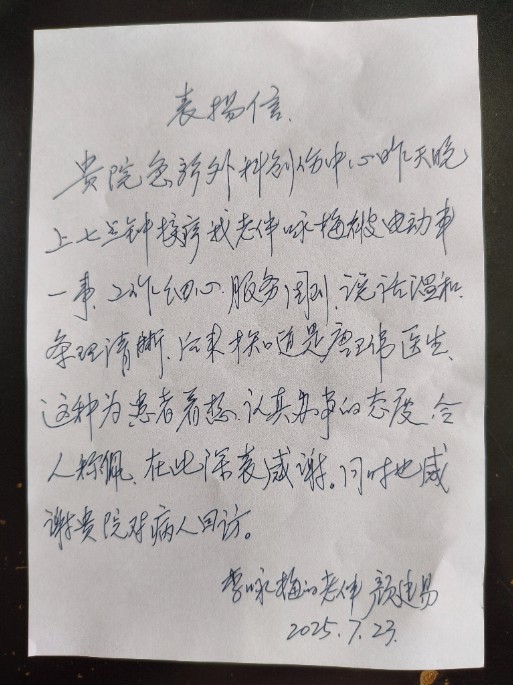 表扬信.
贵院急诊外科创伤中心昨天晚
上七点钟接诊我老伴咏梅被电动车
一事,工作细心.服务周到,说话温和.
条理清晰,后来才知道是唐医生.
这种为患者着想,认真办事的态度,令
人称佩,在此深表感谢。同时也感
谢贵院对病人回访。
李咏梅的老伴 颜建易
2025.7.23.